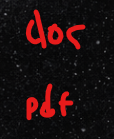 doc
pdf